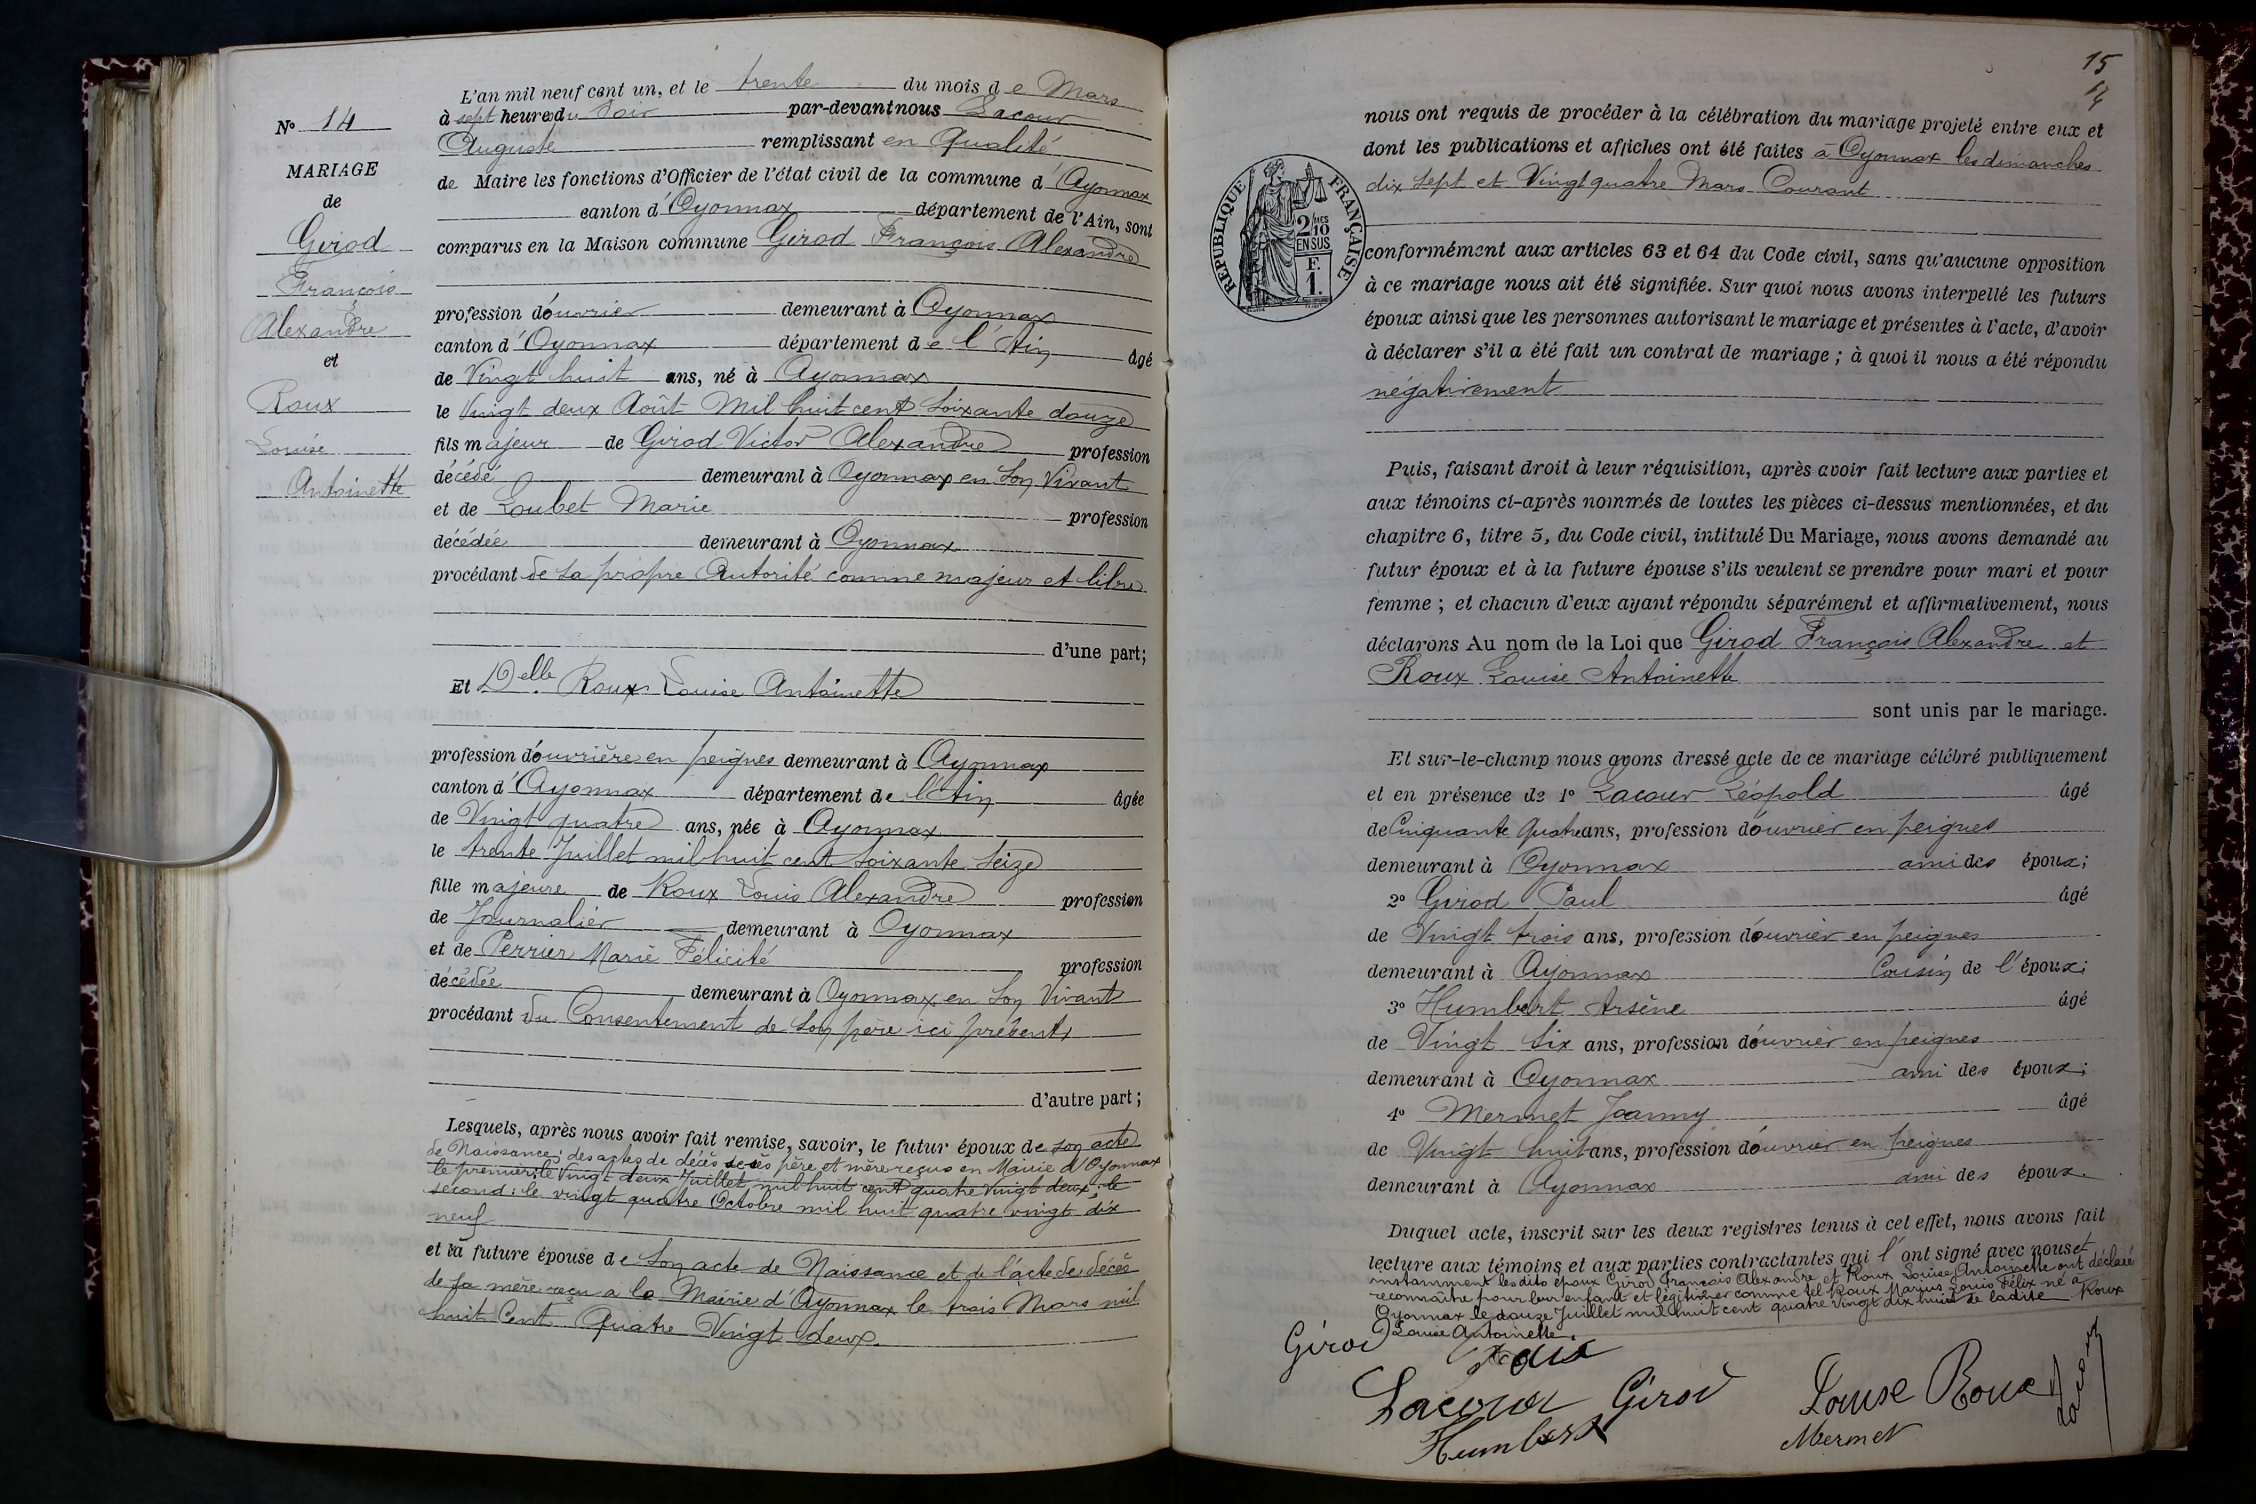 N° 14
MARIAGE
de
Girod
François
Alexandre
et
Roux
Louise
Antoinette
L'an mil neuf cent un, et le trente du mois de Mars
à sept heures du soir par-devant nous Lacour
Auguste remplissant en qualité
de Maire les fonctions d'Officier de l'état civil de la commune d'Oyonnax
canton d'Oyonnax département de l'Ain, sont
comparus en la Maison commune Girod François Alexandre
profession d'ouvrier demeurant à Oyonnax
canton d'Oyonnax département de l'Ain âgé
de Vingt huit ans, né à Oyonnax
le Vingt deux Août Mil huit cent soixante douze
fils majeur de Girod Victor Alexandre profession
décédé demeurant à Oyonnax en son Vivant
et de Loubet Marie profession
décédée demeurant à Oyonnax
procédant de sa propre Autorité comme majeur et libre
d'une part;
Et Delle Roux Louise Antoinette
profession d'ouvrière en peignes demeurant à Oyonnax
canton d'Oyonnax département de l'Ain âgée
de Vingt quatre ans, née à Oyonnax
le trente Juillet mil huit cent soixante seize
fille majeure de Roux Louis Alexandre profession
de Journalier demeurant à Oyonnax
et de Perrier Marie Félicité profession
décédée demeurant à Oyonnax en son Vivant
procédant du Consentement de son père ici présent,
d'autre part;
Lesquels, après nous avoir fait remise, savoir, le futur époux de son acte
de Naissance; des actes de décès de ses père et mère reçus en Mairie d'Oyonnax
le premier: le Vingt deux Juillet mil huit cent quatre vingt deux; le
second: le vingt quatre Octobre mil huit quatre vingt dix
neuf
et la future épouse de son acte de Naissance et de l'acte de décès
de sa mère reçu à la Mairie d'Oyonnax le trois Mars mil
huit Cent Quatre Vingt deux.
15
14
nous ont requis de procéder à la célébration du mariage projeté entre eux et
dont les publications et affiches ont été faites à Oyonnax les dimanches
dix sept et Vingt quatre Mars Courant
RÉPUBLIQUE FRANÇAISE
2/10 MES
EN SUS
F.
1.
conformément aux articles 63 et 64 du Code civil, sans qu'aucune opposition
à ce mariage nous ait été signifiée. Sur quoi nous avons interpellé les futurs
époux ainsi que les personnes autorisant le mariage et présentes à l'acte, d'avoir
à déclarer s'il a été fait un contrat de mariage; à quoi il nous a été répondu
négativement
Puis, faisant droit à leur réquisition, après avoir fait lecture aux parties et
aux témoins ci-après nommés de toutes les pièces ci-dessus mentionnées, et du
chapitre 6, titre 5, du Code civil, intitulé Du Mariage, nous avons demandé au
futur époux et à la future épouse s'ils veulent se prendre pour mari et pour
femme; et chacun d'eux ayant répondu séparément et affirmativement, nous
déclarons Au nom de la Loi que Girod François Alexandre et
Roux Louise Antoinette
sont unis par le mariage.
Et sur-le-champ nous avons dressé acte de ce mariage célébré publiquement
et en présence de 1° Lacour Léopold âgé
de Cinquante Quatre ans, profession d'ouvrier en peignes
demeurant à Oyonnax ami des époux;
2° Girod Paul âgé
de Vingt trois ans, profession d'ouvrier en peignes
demeurant à Oyonnax Cousin de l'époux;
3° Humbert Arsène âgé
de Vingt six ans, profession d'ouvrier en peignes
demeurant à Oyonnax ami des époux;
4° Mermet Joanny âgé
de Vingt huit ans, profession d'ouvrier en peignes
demeurant à Oyonnax ami des époux.
Duquel acte, inscrit sur les deux registres tenus à cet effet, nous avons fait
lecture aux témoins et aux parties contractantes qui l'ont signé avec nous et
instamment lesdits époux Girod François Alexandre et Roux Louise Antoinette ont déclaré
reconnaître pour leur enfant et légitimer comme tel Roux Marius Louis Félix né à
Oyonnax le douze Juillet mil huit cent quatre vingt dix huit de ladite Roux
Louise Antoinette.
Girod Roux
Lacour Girod Louise Roux Lacour
Humbert Mermet